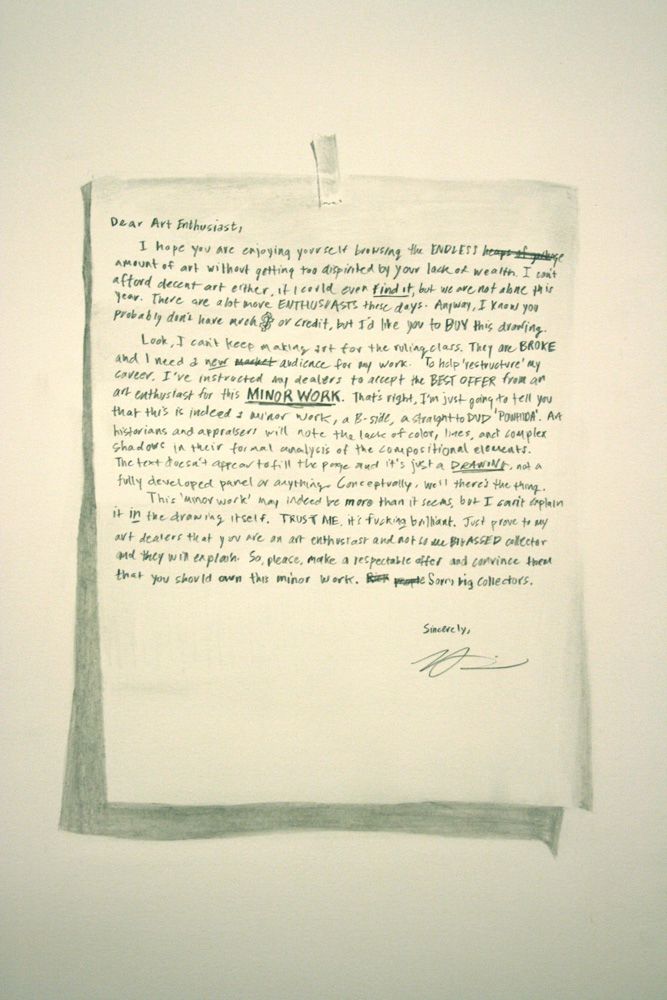 Dear Art Enthusiast,
I hope you are enjoying yourself browsing the ENDLESS heaps of garbage
amount of art without getting too dispirited by your lack of wealth. I can't
afford decent art either, if I could even find it, but we are not alone this
year. There are alot more ENTHUSIASTS these days. Anyway, I know you
probably don't have much $ or credit, but I'd like you to BUY this drawing.
Look, I can't keep making art for the ruling class. They are BROKE
and I need a new market audience for my work. To help 'restructure' my
career, I've instructed my dealers to accept the BEST OFFER from an
art enthusiast for this MINOR WORK. That's right, I'm just going to tell you
that this is indeed a minor work, a B-side, a straight to DVD 'POWHIDA'. Art
historians and appraisers will note the lack of color, lines, and complex
shadows in their formal analysis of the compositional elements.
The text doesn't appear to fill the page and it's just a DRAWING, not a
fully developed panel or anything. Conceptually, well there's the thing.
This 'minor work' may indeed be more than it seems, but I can't explain
it in the drawing itself. TRUST ME, it's fucking brilliant. Just prove to my
art dealers that you are an art enthusiast and not some BIASSED collector
and they will explain. So, please, make a respectable offer and convince them
that you should own this minor work. Rich people Sorry big collectors.
Sincerely,